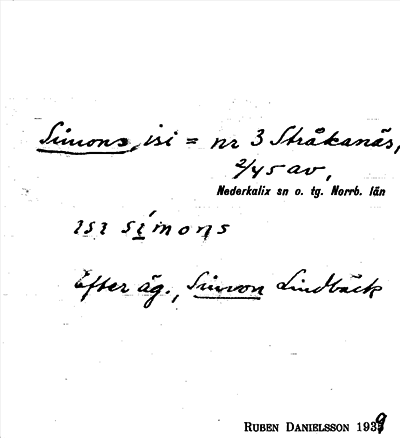 Simons, isi = nr 3 Stråkanäs,
2/45 av,
Nederkalix sn o. tg. Norrb. län
ısı símons
Efter äg., Simon Lindbäck
RUBEN DANIELSSON 1939